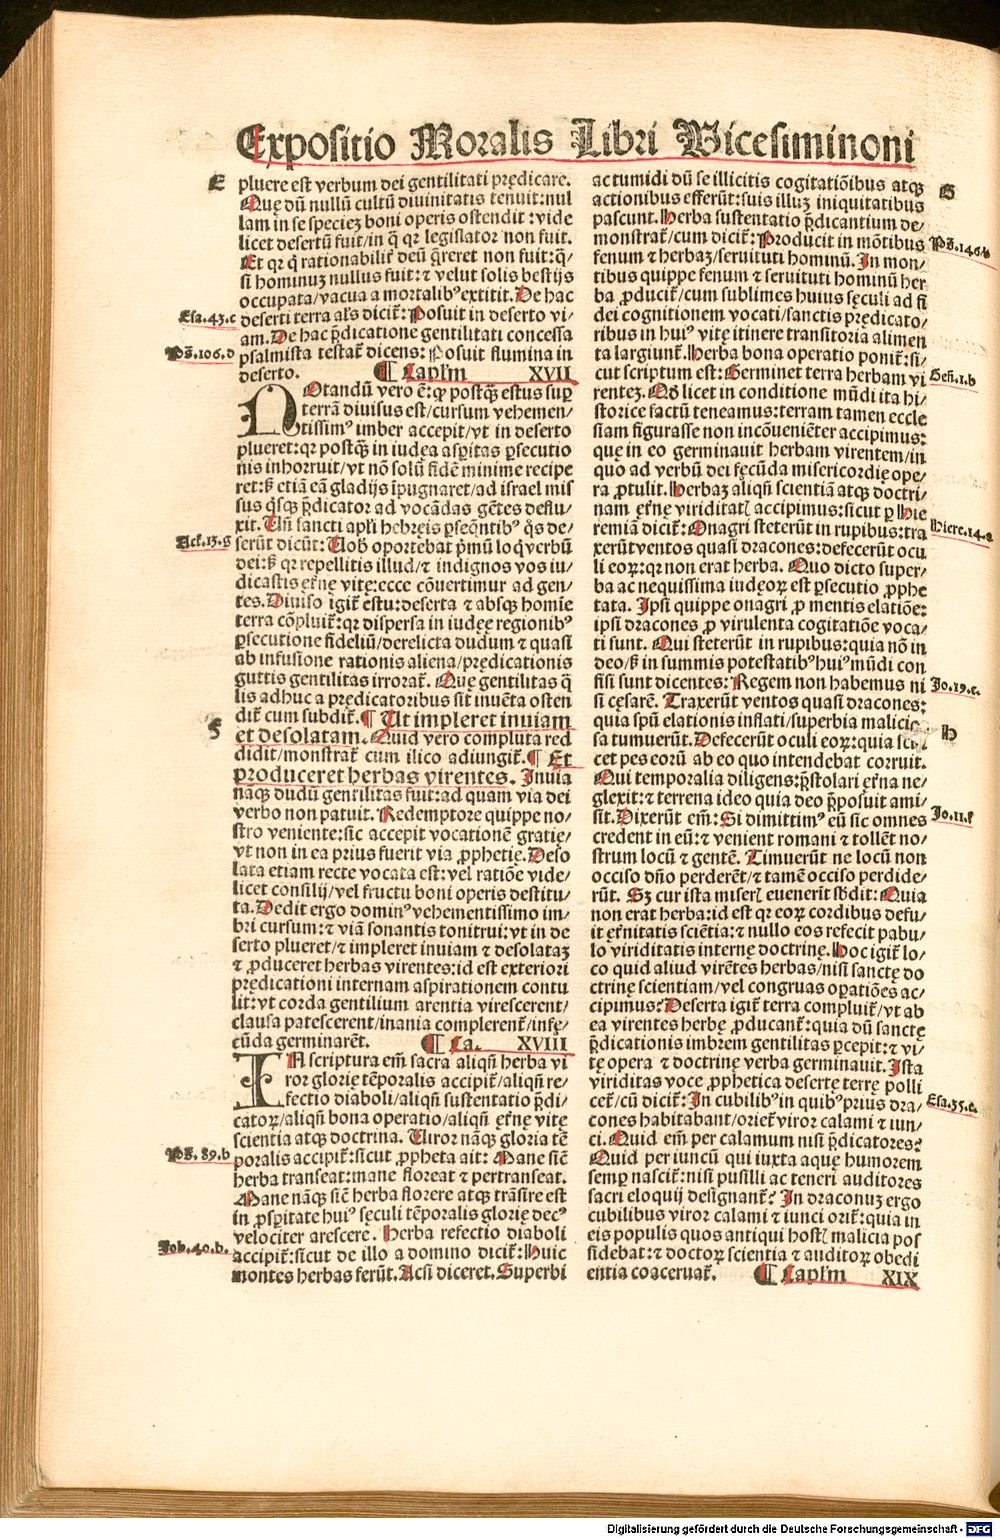 Expositio Moralis Libri Vicesiminoni
E
pluere est verbum dei gentilitati prędicare.
Quę dū nullū cultū diuinitatis tenuit: nul/
lam in se specieʒ boni operis ostendit: vide
licet desertū fuit/in q̄ qꝛ legislator non fuit.
Et qꝛ q̄ rationabiliť deū q̄reret non fuit: q̄/
si hominuʒ nullus fuit: ⁊ velut solis bestijs
occupata/vacua a mortalibꝰ extitit. De hac
Esa.43.c
deserti terra al's diciť: Posuit in deserto vi/
am. De hac p̄dicatione gentilitati concessa
Ps̄.106.d
psalmista testať dicens: Posuit flumina in
deserto. ¶ Capl'm XVII
NOtandū vero ē: ꝙ postq̄ estus suꝑ
terrā diuisus est/cursum vehemen/
tissimꝰ imber accepit/vt in deserto
plueret: qꝛ postq̄ in iudęa asꝑitas ꝑsecutio
nis inhorruit/vt nō solū fidē minime recipe
ret: sꝫ etiā eā gladijs īpugnaret/ad israel mis
sus q̄sqꝫ p̄dicator ad vocādas gētes deflu/
xit. Vñ sancti apl'i hebręis ꝑseq̄ntibꝰ q̄s de/
Act.13.g
serūt dicūt: Vob̄ oportebat p̄mū loq̄ verbū
dei: sꝫ qꝛ repellitis illud/⁊ indignos vos iu/
dicastis ęťnę vitę: ecce cōuertimur ad gen/
tes. Diuiso igiť estu: deserta ⁊ absqꝫ homīe
terra cōpluiť: qꝛ dispersa in iudęę regionibꝰ
ꝑsecutione fideliū/derelicta dudum ⁊ quasi
ab infusione rationis aliena/prędicationis
guttis gentilitas irrorať. Quę gentilitas q̄
lis adhuc a prędicatoribus sit inuēta osten
F
diť cum subdiť. ¶ Ut impleret inuiam
et desolatam. Quid vero compluta red
didit/monstrať cum ilico adiungiť. ¶ Et
produceret herbas virentes. Inuia
nāqꝫ dudū gentilitas fuit: ad quam via dei
verbo non patuit. Redemptore quippe no/
stro veniente: sic accepit vocationē gratię/
vt non in ea prius fuerit via ꝓphetię. Deso
lata etiam recte vocata est: vel ratiōe vide/
licet consilij/vel fructu boni operis destitu/
ta. Dedit ergo dominꝰ vehementissimo im/
bri cursum: ⁊ viā sonantis tonitrui: vt in de
serto plueret/⁊ impleret inuiam ⁊ desolataʒ
⁊ ꝓduceret herbas virentes: id est exteriori
prędicationi internam aspirationem contu
lit: vt corda gentilium arentia virescerent/
clausa patescerent/inania complerenť/infę/
cūda germinarēt. ¶ Ca. XVIII
IN scriptura em̄ sacra aliqn̄ herba vi
ror glorię tēporalis accipiť/aliqn̄ re/
fectio diaboli/aliqn̄ sustentatio p̄di/
catoꝝ/aliqn̄ bona operatio/aliqn̄ ęťnę vitę
scientia atqꝫ doctrina. Viror nāqꝫ gloria tē
Ps̄.89.b
poralis accipiť: sicut ꝓpheta ait: Mane sic̄
herba transeat: mane floreat ⁊ pertranseat.
Mane nāqꝫ sic̄ herba florere atqꝫ trāsire est
in ꝓsꝑitate huiꝰ sęculi tēporalis glorię decꝰ
velociter arescere. Herba refectio diaboli
Job.40.b.
accipiť: sicut de illo a domino diciť: Huic
montes herbas ferūt. Acsi diceret. Superbi
G
ac tumidi dū se illicitis cogitatiōibus atqꝫ
actionibus efferūt: suis illuʒ iniquitatibus
pascunt. Herba sustentatio p̄dicantium de/
Ps̄.146.b
monstrať/cum diciť: Producit in mōtibus
fenum ⁊ herbaʒ/seruituti hominū. In mon/
tibus quippe fenum ⁊ seruituti hominū her
ba ꝓduciť/cum sublimes huius sęculi ad fi
dei cognitionem vocati/sanctis prędicato/
ribus in huiꝰ vitę itinere transitoria alimen
ta largiunť. Herba bona operatio poniť: si/
Gen̄.1.b
cut scriptum est: Germinet terra herbam vi
renteʒ. Qd̄ licet in conditione mūdi ita hi/
storice factū teneamus: terram tamen eccle
siam figurasse non incōueniēter accipimus:
quę in eo germinauit herbam virentem/in
quo ad verbū dei fęcūda misericordię ope/
ra ꝓtulit. Herbaʒ aliqn̄ scientiā atqꝫ doctri/
nam ęťnę viriditatꝭ accipimus: sicut ꝑ Hie
Hiere.14.a
remiā diciť: Onagri steterūt in rupibus: tra
xerūt ventos quasi dracones: defecerūt ocu
li eoꝝ: qꝛ non erat herba. Quo dicto super/
ba ac nequissima iudęoꝝ est ꝑsecutio ꝓphe
tata. Ipsi quippe onagri ꝓ mentis elatiōe:
ipsi dracones ꝓ virulenta cogitatiōe voca/
ti sunt. Qui steterūt in rupibus: quia nō in
deo/sꝫ in summis potestatibꝰ huiꝰ mūdi con
Jo.19.c.
fisi sunt dicentes: Regem non habemus ni
si cęsarē. Traxerūt ventos quasi dracones:
H
quia spū elationis inflati/superbia malicio
sa tumuerūt. Defecerūt oculi eoꝝ: quia
cet pes eorū ab eo quo intendebat corruit.
Qui temporalia diligens: p̄stolari ęťna ne/
glexit: ⁊ terrena ideo quia deo p̄posuit ami/
Jo.11.f
sit. Dixerūt em̄: Si dimittimꝰ eū sic omnes
credent in eū: ⁊ venient romani ⁊ tollēt no/
strum locū ⁊ gentē. Timuerūt ne locū non
occiso dn̄o perderēt/⁊ tamē occiso perdide/
rūt. Sʒ cur ista miserꝭ euenerūt sb̄dit: Quia
non erat herba: id est qꝛ eoꝝ cordibus defu/
it ęťnitatis sciētia: ⁊ nullo eos refecit pabu/
lo viriditatis internę doctrinę. Hoc igiť lo/
co quid aliud virētes herbas/nisi sanctę do
ctrinę scientiam/vel congruas oꝑatiōes ac/
cipimus? Deserta igiť terra compluiť/vt ab
ea virentes herbę ꝓducanť: quia dū sanctę
p̄dicationis imbrem gentilitas ꝑcepit: ⁊ vi/
tę opera ⁊ doctrinę verba germinauit. Ista
viriditas voce ꝓphetica desertę terrę polli
Esa.35.c.
ceť/cū diciť: In cubilibꝰ in quibꝰ prius dra/
cones habitabant/orieť viror calami ⁊ iun/
ci. Quid em̄ per calamum nisi p̄dicatores?
Quid per iuncū qui iuxta aquę humorem
semꝑ nasciť: nisi pusilli ac teneri auditores
sacri eloquij designanť? In draconuʒ ergo
cubilibus viror calami ⁊ iunci oriť: quia in
eis populis quos antiqui hostꝭ malicia pos
sidebat: ⁊ doctoꝝ scientia ⁊ auditoꝝ obedi
entia coaceruať. ¶ Capl'm XIX
Digitalisierung gefördert durch die Deutsche Forschungsgemeinschaft - DFG